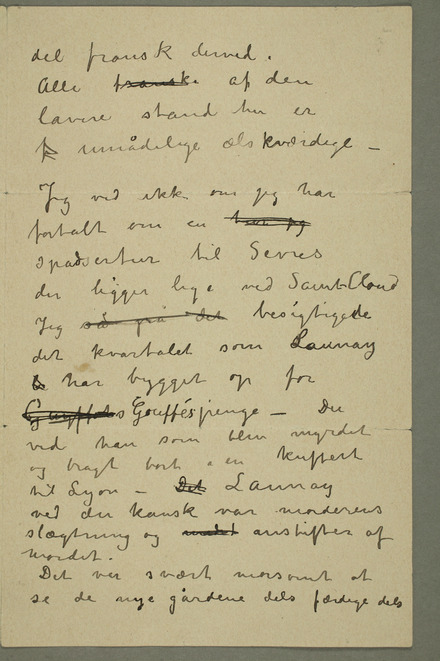 del fransk derved.
Alle franske af den
lavere stand her er
umådelige elskværdige —
Jeg ved ikk om jeg har
fortalt om en
spadsertur til Sevres
der ligger lige ved Saint Cloud
Jeg så på det besigtigede
det kvartalet som Launay
har bygget op for
Gouffés penge — Du
ved han som blev myrdet
og bragt bort i en kuffert
til Lyon — Det Launay
ved du kansk var morderens
slægtning og anstifter af
mordet.
Det var svært morsomt at
se de nye gårdene dels færdige dels